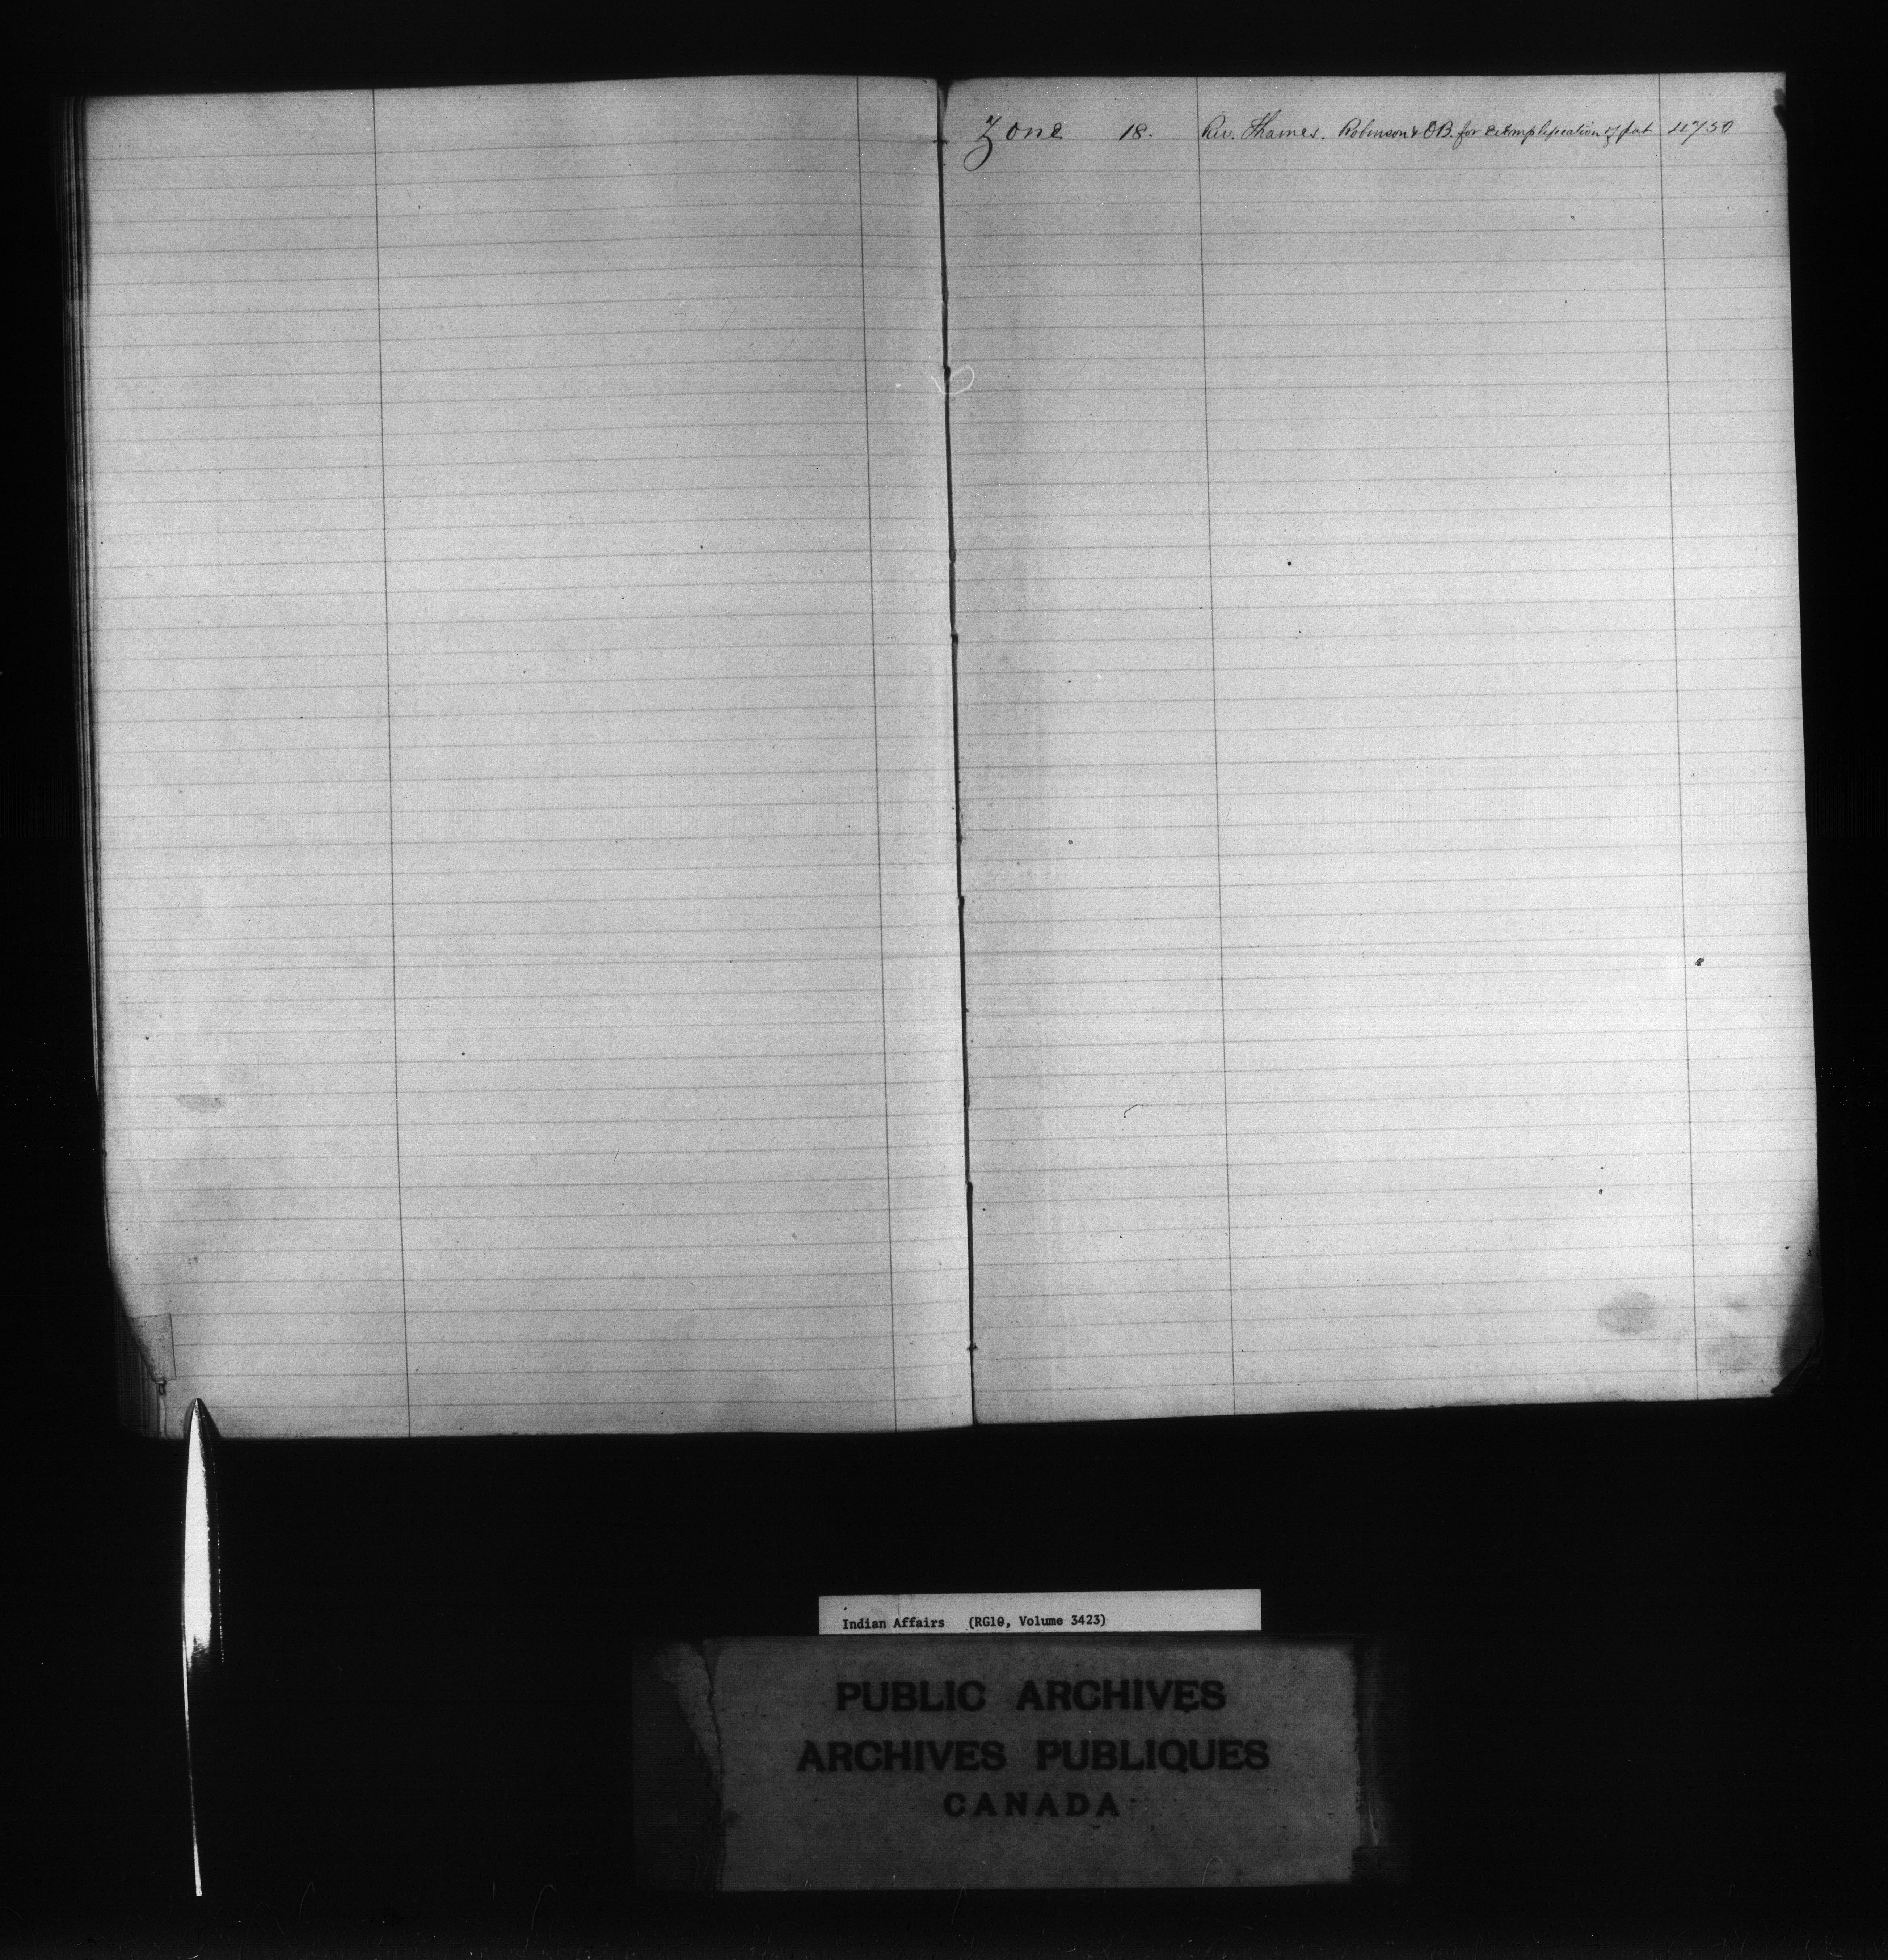 Zone 18. Riv. Thames. Robinson & OB. for exemplification of pat 4750
Indian Affairs (RG10, Volume 3423)
PUBLIC ARCHIVES
ARCHIVES PUBLIQUES
CANADA